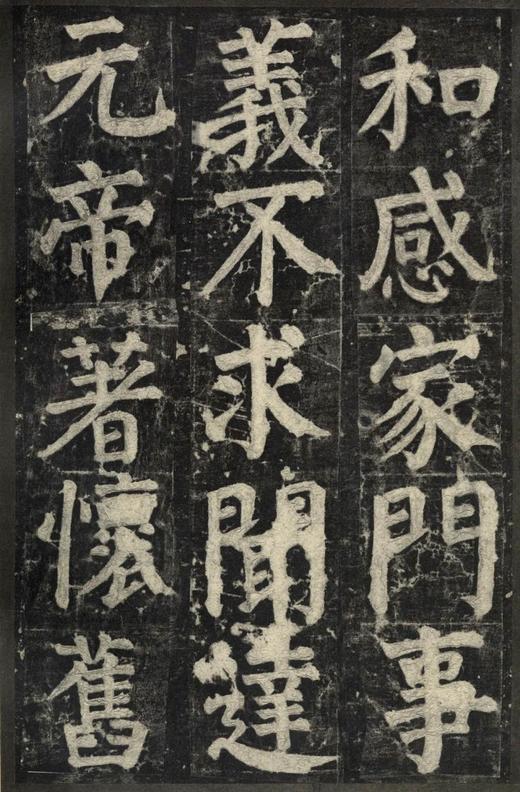 和感家門事
義不求聞達
元帝著懷舊